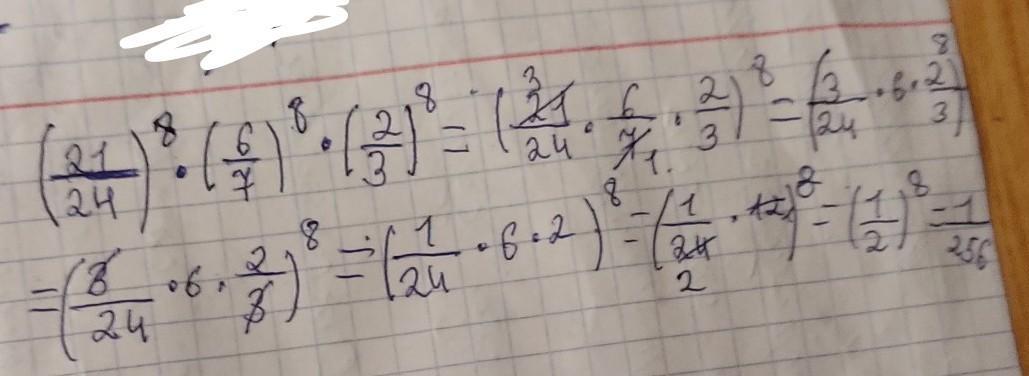 (21/24)^8 · (6/7)^8 · (2/3)^8 = (21/24 3 · 6/7 1 · 2/3)^8 = (3/24 · 6 · 2/3)^8
= (3/24 · 6 · 2/3)^8 = (1/24 · 6 · 2)^8 = (1/24 2 · 12)^8 = (1/2)^8 = 1/256